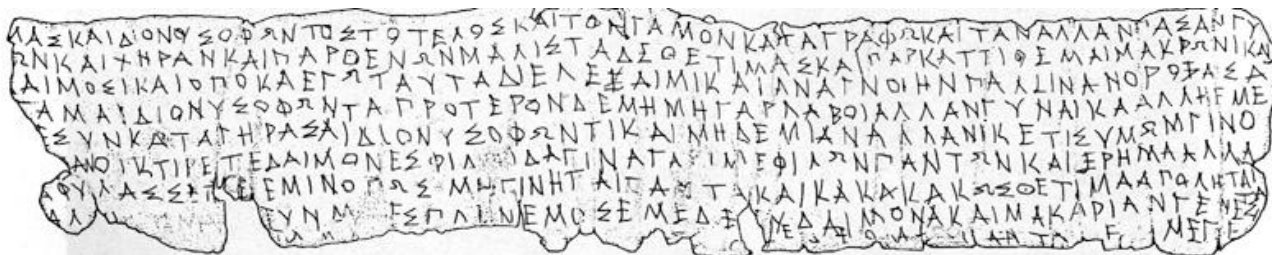 ΑΣΚΑΙΔΙΟΝΥΣΟΦΩΝΤΟΣΤΟΤΕΛΟΣΚΑΙΤΟΝΓΑΜΟΝΚΑΤΑΓΡΑΦΩΚΑΙΤΑΝΑΛΛΑΝΠΑΣΑΝΓΥ
ΩΝΚΑΙΧΗΡΑΝΚΑΙΠΑΡΘΕΝΩΝΜΑΛΙΣΤΑΔΕΘΕΤΙΜΑΣΚΑΙΠΑΡΚΑΤΤΙΘΕΜΑΙΜΑΚΡΩΝΙΚΑΙ
ΑΙΜΟΣΙΚΑΙΟΠΟΚΑΕΓΩΤΑΥΤΑΔΙΕΛΕΞΑΙΜΙΚΑΙΑΝΑΓΝΟΙΗΝΠΑΛLΙΝΑΝΟΡΟΞΑΣΑ
ΓΑΜΑΙΔΙΟΝΥΣΟΦΩΝΤΑΠΡΟΤΕΡΟΝΔΕΜΗΜΗΓΑΡΛΑΒΟΙΑΛΛΑΝΓΥΝΑΙΚΑΑΛΛΗΕΜΕ
ΕΣΥΝΚΑΤΑΓΗΡΑΣΑΙΔΙΟΝΥΣΟΦΩΝΤΙΚΑΙΜΗΔΕΜΙΑΝΑΛΛΑΝΙΚΕΤΙΣΥΜΩΜΓΙΝΟ
ΑΝΟΙΚΤΙΡΕΤΕΔΑΙΜΟΝΕΣΦΙΛΙΔΑΓΙΝΑΓΑΡΙΜΕΦΙΛΩΝΠΑΝΤΩΝΚΑΙΕΡΗΜΑΑΛΛΑ
ΑΦΥΛΑΣΣΕΤΕΕΜΙΝΟΠΩΣΜΗΓΙΝΗΤΑΙΤΑΥΤΑΚΑΙΚΑΚΑΚΑΚΩΣΘΕΤΙΜΑΑΠΟΛΗΤΑΙ
ΑΛ ΥΝΜ ΕΣΠΛΙΝΕΜΟΣΕΜΕΔΕ ΥΕΔΑΙΜΟΝΑΚΑΙΜΑΚΑΡΙΑΝΓΕΝΕΣ
ΜΕΓΕ